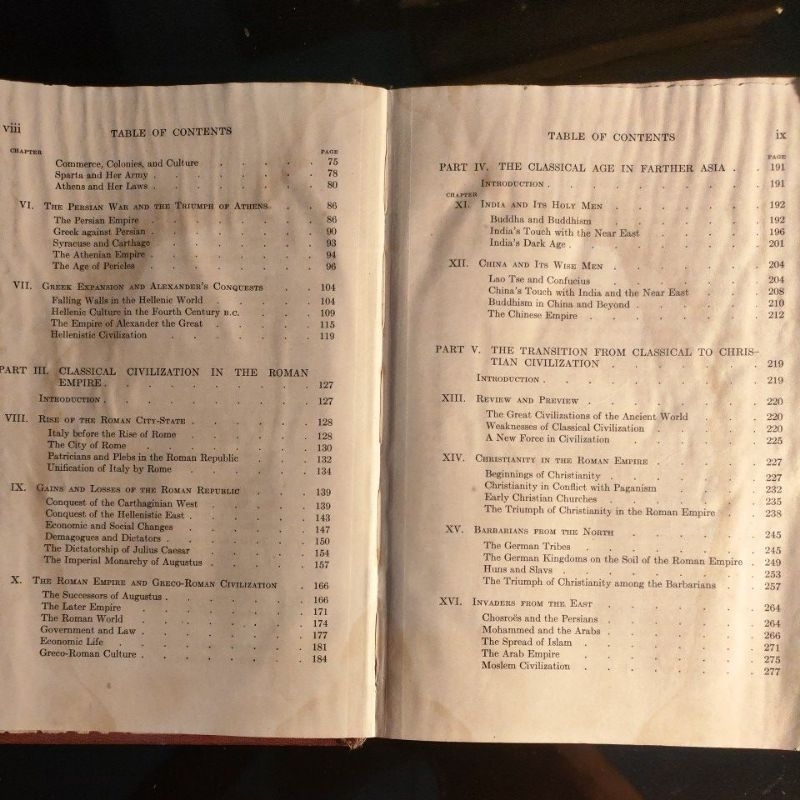 viii
TABLE OF CONTENTS
CHAPTER PAGE
Commerce, Colonies, and Culture . . . . . 75
Sparta and Her Army . . . . . . 78
Athens and Her Laws . . . . . . 80
VI. The Persian War and the Triumph of Athens . . 86
The Persian Empire . . . . . . 86
Greek against Persian . . . . . . 90
Syracuse and Carthage . . . . . . 93
The Athenian Empire . . . . . . 94
The Age of Pericles . . . . . . 96
VII. Greek Expansion and Alexander's Conquests . . 104
Falling Walls in the Hellenic World . . . . 104
Hellenic Culture in the Fourth Century B.C. . . . 109
The Empire of Alexander the Great . . . . 115
Hellenistic Civilization . . . . . . 119
PART III. CLASSICAL CIVILIZATION IN THE ROMAN
EMPIRE . . . . . . . . 127
Introduction . . . . . . . . 127
VIII. Rise of the Roman City-State . . . . 128
Italy before the Rise of Rome . . . . . 128
The City of Rome . . . . . . 130
Patricians and Plebs in the Roman Republic . . . 132
Unification of Italy by Rome . . . . . 134
IX. Gains and Losses of the Roman Republic . . . 139
Conquest of the Carthaginian West . . . . 139
Conquest of the Hellenistic East . . . . . 143
Economic and Social Changes . . . . . 147
Demagogues and Dictators . . . . . 150
The Dictatorship of Julius Caesar . . . . 154
The Imperial Monarchy of Augustus . . . . 157
X. The Roman Empire and Greco-Roman Civilization . 166
The Successors of Augustus . . . . . . 166
The Later Empire . . . . . . 171
The Roman World . . . . . . 174
Government and Law . . . . . . 177
Economic Life . . . . . . . 181
Greco-Roman Culture . . . . . . 184
TABLE OF CONTENTS ix
PAGE
PART IV. THE CLASSICAL AGE IN FARTHER ASIA . . 191
Introduction . . . . . . . . 191
CHAPTER
XI. India and Its Holy Men . . . . . 192
Buddha and Buddhism . . . . . . 192
India's Touch with the Near East . . . . 196
India's Dark Age . . . . . . . 201
XII. China and Its Wise Men . . . . . 204
Lao Tse and Confucius . . . . . . 204
China's Touch with India and the Near East . . 208
Buddhism in China and Beyond . . . . . 210
The Chinese Empire . . . . . . 212
PART V. THE TRANSITION FROM CLASSICAL TO CHRIS-
TIAN CIVILIZATION . . . . . 219
Introduction . . . . . . . . 219
XIII. Review and Preview . . . . . . 220
The Great Civilizations of the Ancient World . . 220
Weaknesses of Classical Civilization . . . . 220
A New Force in Civilization . . . . . 225
XIV. Christianity in the Roman Empire . . . . 227
Beginnings of Christianity . . . . . 227
Christianity in Conflict with Paganism . . . . 232
Early Christian Churches . . . . . 235
The Triumph of Christianity in the Roman Empire . . 238
XV. Barbarians from the North . . . . . 245
The German Tribes . . . . . . 245
The German Kingdoms on the Soil of the Roman Empire . 249
Huns and Slavs . . . . . . . 253
The Triumph of Christianity among the Barbarians . . 257
XVI. Invaders from the East . . . . . 264
Chosroës and the Persians . . . . . 264
Mohammed and the Arabs . . . . . 266
The Spread of Islam . . . . . . 271
The Arab Empire . . . . . . 275
Moslem Civilization . . . . . . 277